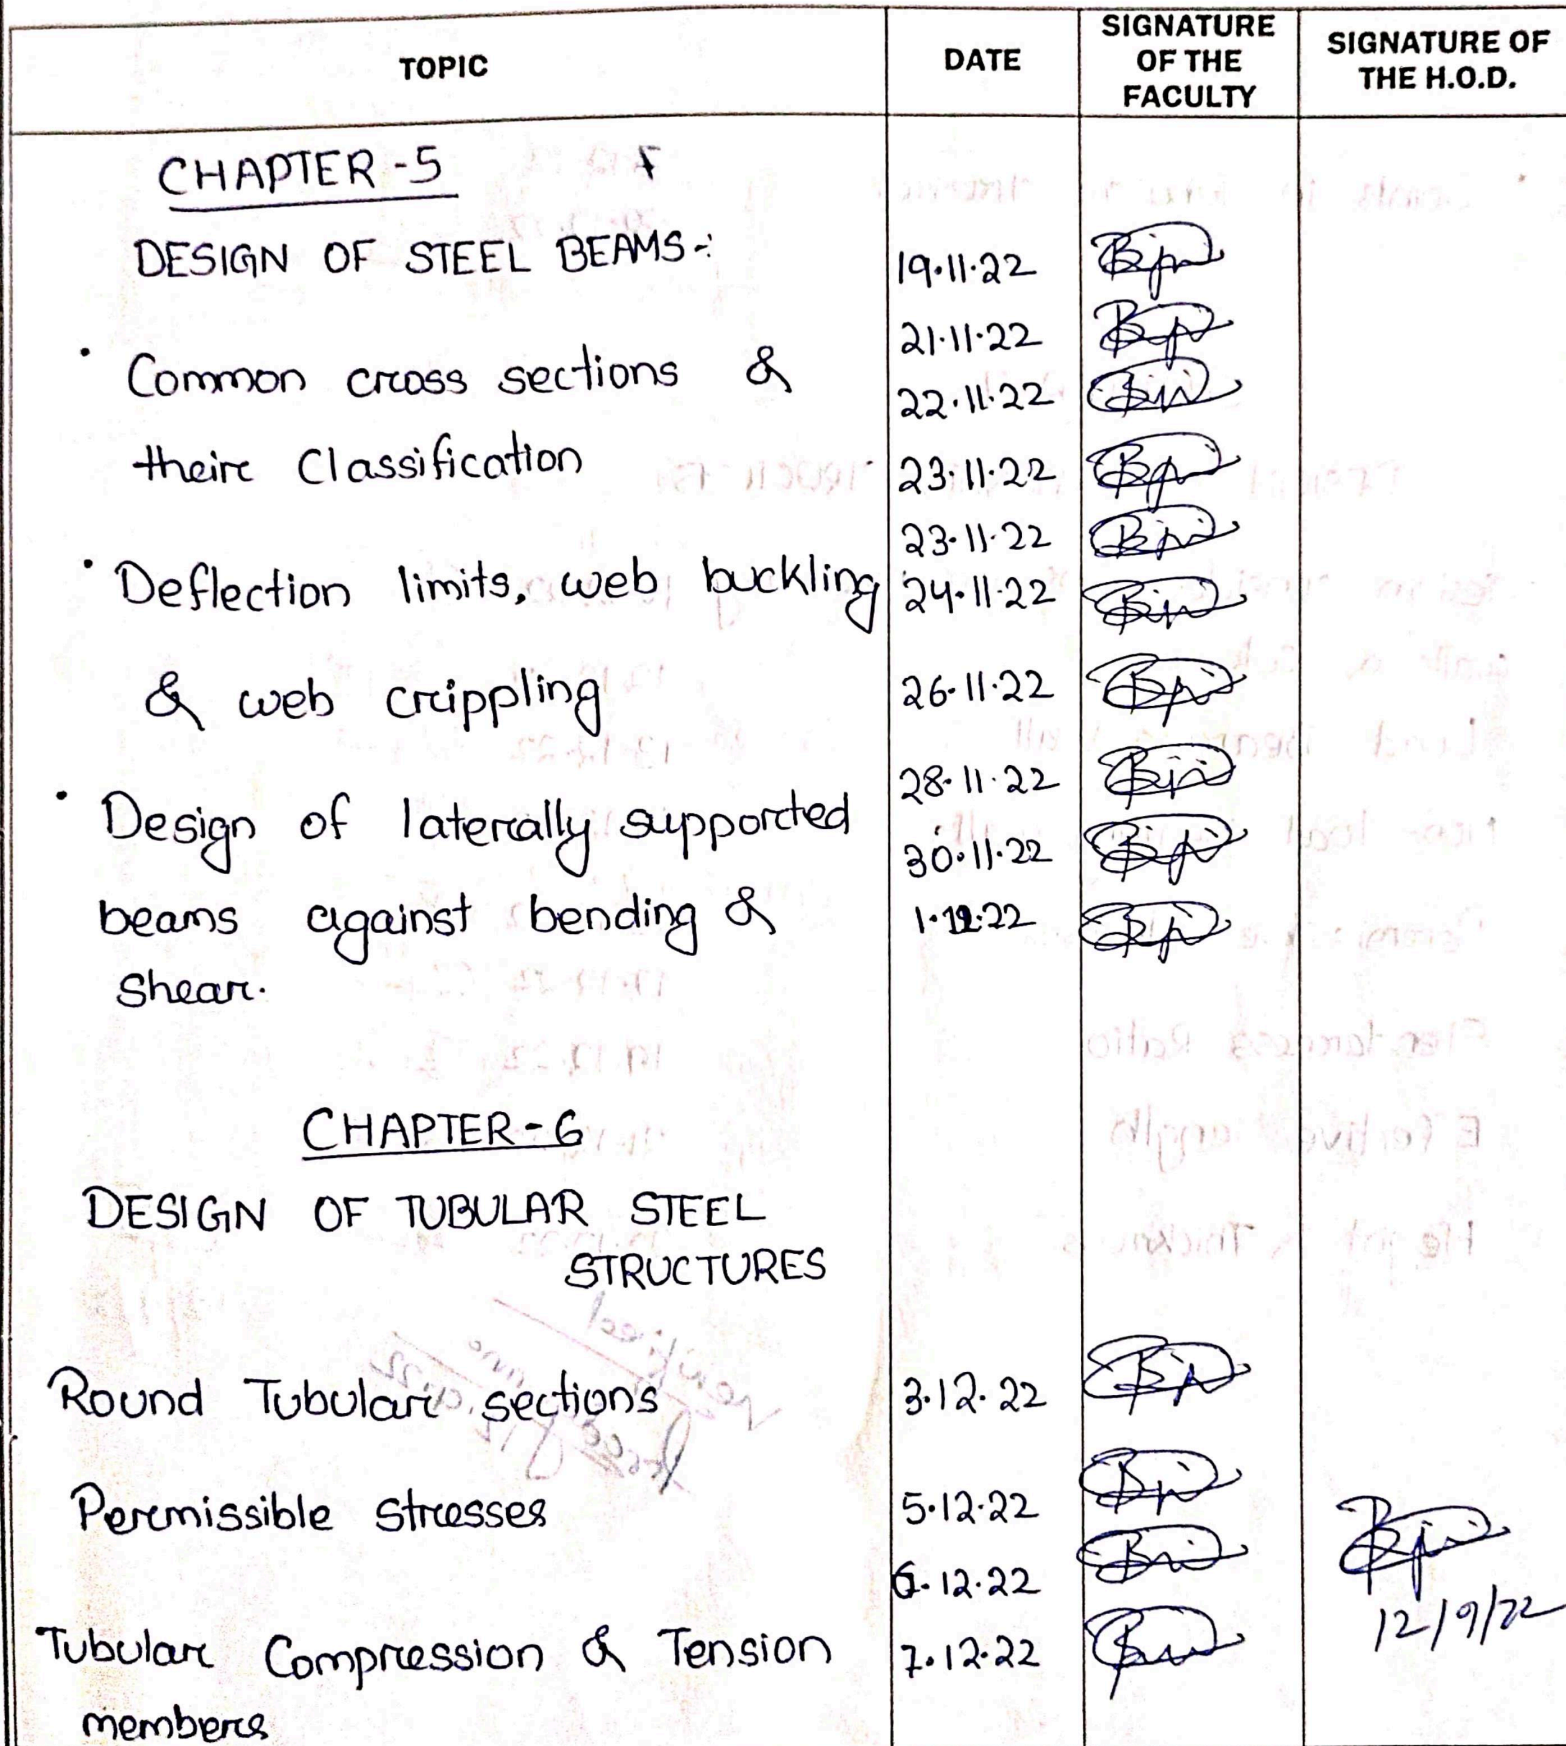 TOPIC DATE SIGNATURE OF THE FACULTY SIGNATURE OF THE H.O.D.
CHAPTER-5
DESIGN OF STEEL BEAMS-: 19.11.22
21.11.22
Common cross sections & 22.11.22
their Classification 23.11.22
23.11.22
Deflection limits, web buckling 24.11.22
& web crippling 26.11.22
28.11.22
Design of laterally supported 30.11.22
beams against bending & 1.12.22
Shear.
CHAPTER-6
DESIGN OF TUBULAR STEEL
STRUCTURES
Round Tubular sections 3.12.22
Permissible stresses 5.12.22
6.12.22
12/9/22
Tubular Compression & Tension 7.12.22
members